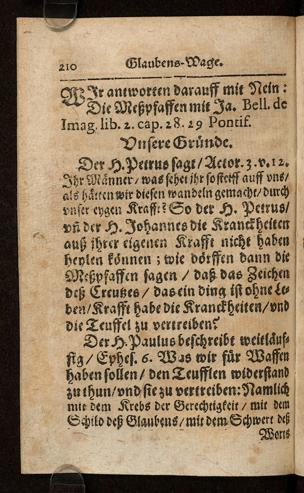 210 Glaubens-Wage.
WIr antworten darauff mit Nein:
Die Meßpfaffen mit Ja. Bell. de
Imag. lib. 2. cap. 28. 29 Pontif.
Vnsere Gründe.
Der H. Petrus sagt / Actor. 3. v. 12.
Ihr Männer / was sehet ihr so steiff auff vns /
als hätten wir diesen wandeln gemacht / durch
vnser eygen Krafft? So der H. Petrus /
vñ der H. Johannes die Kranckheiten
auß ihrer eigenen Krafft nicht haben
heylen können; wie dörffen dann die
Meßpfaffen sagen / daß das Zeichen
deß Creutzes / das ein ding ist ohne Le-
ben / Krafft habe die Kranckheiten / vnd
die Teuffel zu vertreiben?
Der H. Paulus beschreibt weitläuf-
fig / Ephes. 6. Was wir für Waffen
haben sollen / den Teufflen widerstand
zu thun / vnd sie zu vertreiben: Namlich
mit dem Krebs der Gerechtigkeit / mit dem
Schild deß Glaubens / mit dem Schwert deß
Worts